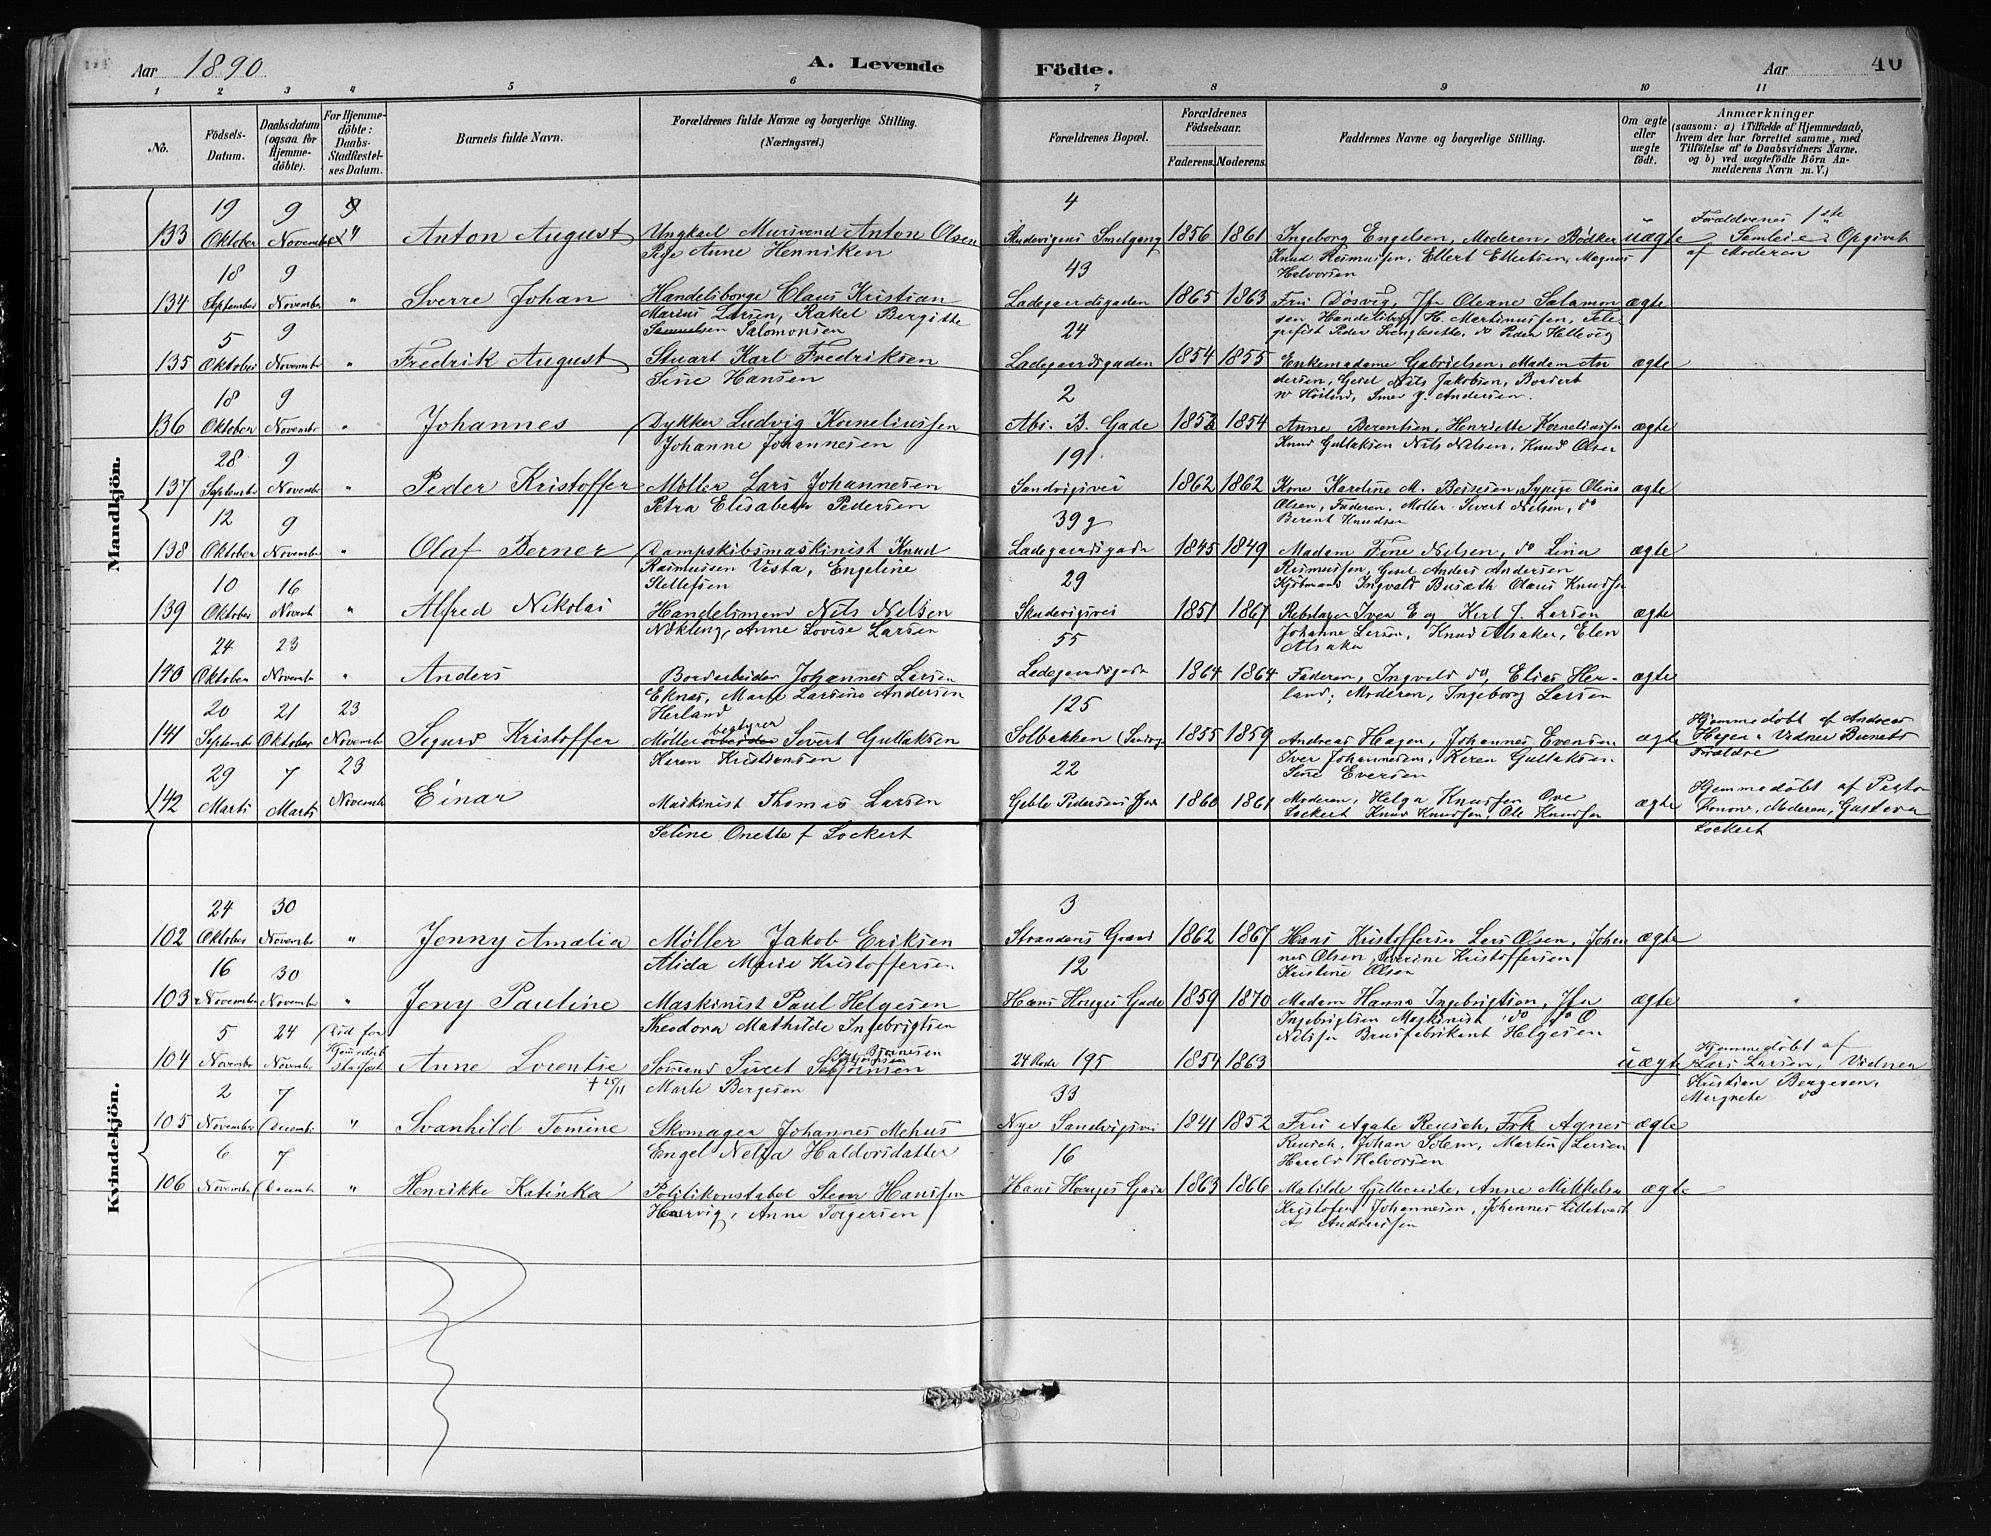 Aar 1890
A. Levende Födte.
Aar 40
1 2 3 4 5 6 7 8 9 10 11
No.
Födsels-Datum.
Daabsdatum (ogsaa for Hjemmedöbte).
For Hjemmedöbte: Daabs-Stadfæstelses Datum.
Barnets fulde Navn.
Forældrenes fulde Navne og borgerlige Stilling.
(Næringsvei.)
Forældrenes Bopæl.
Forældrenes Födselsaar.
Faderens. Moderens.
Faddernes Navne og borgerlige Stilling.
Om ægte eller uægte födt.
Anmærkninger
(saasom: a) i Tilfælde af Hjemmedaab, hvem der har forrettet samme, med Tilföielse af to Daabsvidners Navne. og b) ved uægtefödte Börn Anmelderens Navn m. V.)
Mandkjön.
133 19 Oktober 9 November Anton August Ungkarl Mursvend Anton Olsen
Pige Anne Henriken
4 Skudevigens Smalgang 1856 1861 Ingeborg Engelsen, Moderen, Bødker
Knud Rasmussen, Ellert Ellertsen, Magnus
Halvorsen
uægte Forældrenes 1ste
Samleie. Opgivet
af Moderen
134 18 September 9 November " Sverre Johan Handelsborge Claus Kristian
Marius Larsen, Rakel Bergitte
Samuelsen Salomonsen
43 Ladegaardsgaden 1865 1863 Fru Døsvig, Jfr Oleane Salamon
sen Handelsborg H. Martinussen, Tele
grafist Peder, do Peder Hellevig
ægte
135 5 Oktober 9 November " Fredrik August Stuart Karl Fredriksen
Sine Hansen
24 Ladegaardsgaden 1854 1855 Enkemadame Gabrielsen, Madam An
dersen, Gesel Nils Jakobsen,
Andersen.
ægte
136 18 Oktober 9 November " Johannes Dykker Ludvig Korneliussen
Johanne Johannesen
2 Abs. B. Gade 1852 1854 Anne Berentsen, Henriette Korneliussen
Knud Gullaksen Nils Nilsen, Knud Olsen
ægte
137 28 September 9 November " Peder Kristoffer Møller Lars Johannesen
Petra Elisabeth Pedersen
191 Sandvigsvei 1862 1862 Kone Karoline M. Sypige Oline
Olsen, Faderen, Møller Sivert Nilsen, do
Berent Knudsen
ægte
138 12 Oktober 9 November " Olaf Berner Dampskibsmaskinist Knud
Rasmussen Vesta, Engeline
Stellefsen
39 g Ladegaardsgade 1845 1849 Madam Fine Nilsen, do Lina
Rasmussen, Gesel Anders Andersen
Ingvald Claus Knudsen
ægte
139 10 Oktober 16 Novemb " Alfred Nikolai Handelsmand Nils Nilsen
Nøkling, Anne Lovise Larsen
29 Skudevigsvei 1851 1867 Rebslager Iver E og Karl J. Larsen
Johanne Larsen, Knud Alsaker, Elen
Alsaker
ægte
140 24 Oktober 23 November " Anders Bordarbeider Johannes Larsen
Eknæs, Marte Larsine Andersen
Herland
55 Ladegaardsgade 1864 1864 Faderen, Ingvald do, Elias Her-
land, Moderen, Ingeborg Larsen
ægte
141 20 September 21 Oktober 23 November Sigurd Kristoffer Møllerarbeider bestyrer Sivert Gullaksen
Karen Kristiansen
125 Solbakken (Sandvig 1855 1859 Andreas Hagen, Johannes Evensen
Iver Johannesen, Karen Gullaksen
Sine Eversen
ægte Hjemmedøbt af Andreas
Hagen Vidner Barnets
Forældre
142 29 Marts 7 Marts 23 November Einar Maskinist Thomas Larsen
Seline Onette f Lockert
22 Geble Pedersens Gade 1860 1861 Moderen, Helga Knudsen Ove
Lockert Knud Knudsen, Ole Knudsen
ægte Hjemmedøbt af Pastor
Konow, Moderen, Gustava
Lockert
Kvindekjön.
102 24 Oktober 30 November " Jenny Amalia Møller Jakob Eriksen
Alida Marie Kristoffersen
3 Strandens Grand 1862 1867 Hans Kristoffersen Lars Olsen, Johan
nes Olsen, Severine Kristoffersen
Kristine Olsen
ægte
103 16 November 30 November " Jeny Pauline Maskinist Paul Helgesen
Theodora Mathilde Ingebrigtsen
12 Hans Hauges Gade 1859 1870 Madam Hanna Ingebrigtsen, Jfr
Ingebrigtsen Maskinist do, do O
Nilssen Brusfabrikant Helgesen
ægte
104 5 November 24 November (Død før
Hjemmedaab
stadfæst Anne Lorentse
+ 25/11
Sømand Sivert
Marte Bergesen
24 Rode 195 1854 1863 uægte Hjemmedøbt af
Lars Larsen, Vidner
Kristian Bergesen,
Margrete do
105 2 November 7 Decemb " Svanhild Tomine Skomager Johannes Mehus
Engel Nelia Haldorsdatter
33 Nye Sandvigsvei 1841 1852 Fru Agate Reusch, Frk Agnes
Reusch, Johan Solem, Martin Larsen
Harald Halvorsen
ægte
106 6 November 7 Decemb " Henrikke Katinka Politikonstabel Steen Hanssen
Haarvig, Anne Torgersen
16 Hans Hauges Gade 1863 1866 Matilde Gjelleveite, Anne Mikkelsen
Kristofen Johannesen, Johannes Lilletvedt
A Andreassen
ægte